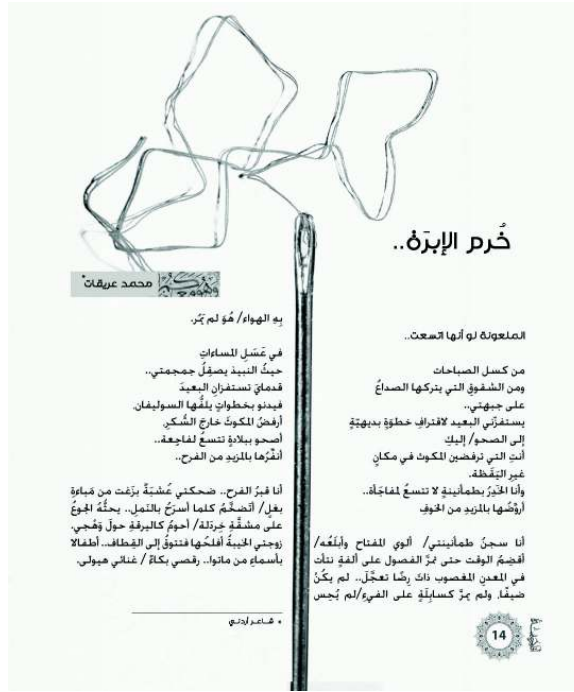 خُرم الإبرَة..
محمد عريقات*
الملعونة لو أنها اتسعت..
من كسل الصباحات
ومن الشقوقِ التي يتركها الصداعُ
على جبهتي..
يستفزّني البعيد لاقترافِ خطوَةٍ بديهيّةٍ
إلى الصحو/ إليكِ
أنتِ التي ترفضين المكوث في مكانٍ
غيرِ اليَقَظة.
وأنا الخَدِرُ بطمأنينةٍ لا تتسعُ لمفاجَأة..
أروّضُها بالمزيدِ من الخوفِ
أنا سجنُ طمأنينتي/ ألوي المفتاح وأبلَعُه/
أقضِمُ الوقت حتى تمرَّ الفصول على ألفةٍ نتأت
في المعدنِ المغصوب ذاتَ رِضًا تعجَّلَ.. لم يكُنْ
ضيفًا، ولم يمرَّ كسابِلَةٍ على الفيءِ/لم يُحِس
بِهِ الهواء/ هُوَ لم يَمُر.
في غَسَلِ المساءاتِ
حيثُ النبيذ يصقِلُ جمجمتي..
قدمايَ تستفزانِ البعيدَ
فيدنو بخطواتٍ يلفُّها السوليفان.
أرفضُ المكوثَ خارجَ السُّكرِ.
أصحو ببلادةٍ تتسعُ لفاجِعة..
أنقّرُها بالمزيدِ من الفرح..
أنا قبرُ الفرح.. ضحكتي عُشبَةٌ بزَغت من مَباءةِ
بغلٍ/ أتضخَّمُ كلما أسرَجُ بالنملِ.. يحثُّهُ الجُوعُ
على مشقَّةِ خِردَلة/ أحومُ كاليرقةِ حولَ وَهْجي.
زوجتي الخَيبةُ أفلحُها فتتوقُ إلى القِطاف.. أطفالا
بأسماءِ من ماتوا.. رقصي بكاءٌ / غنائي هيولى.
* شاعر أردني
14